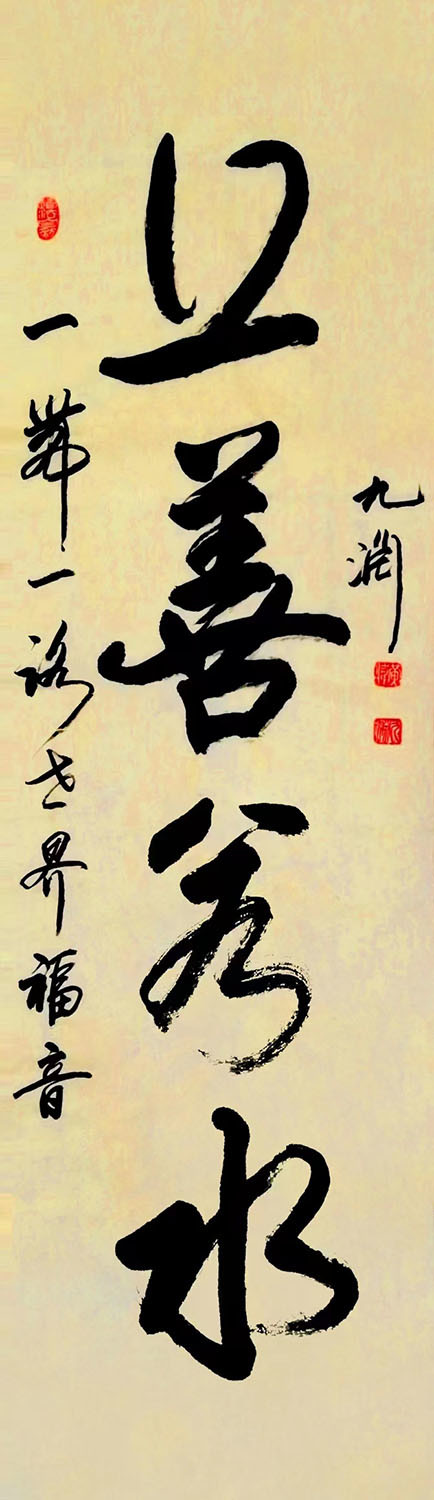 一帶一路世界福音
上善若水
九淵